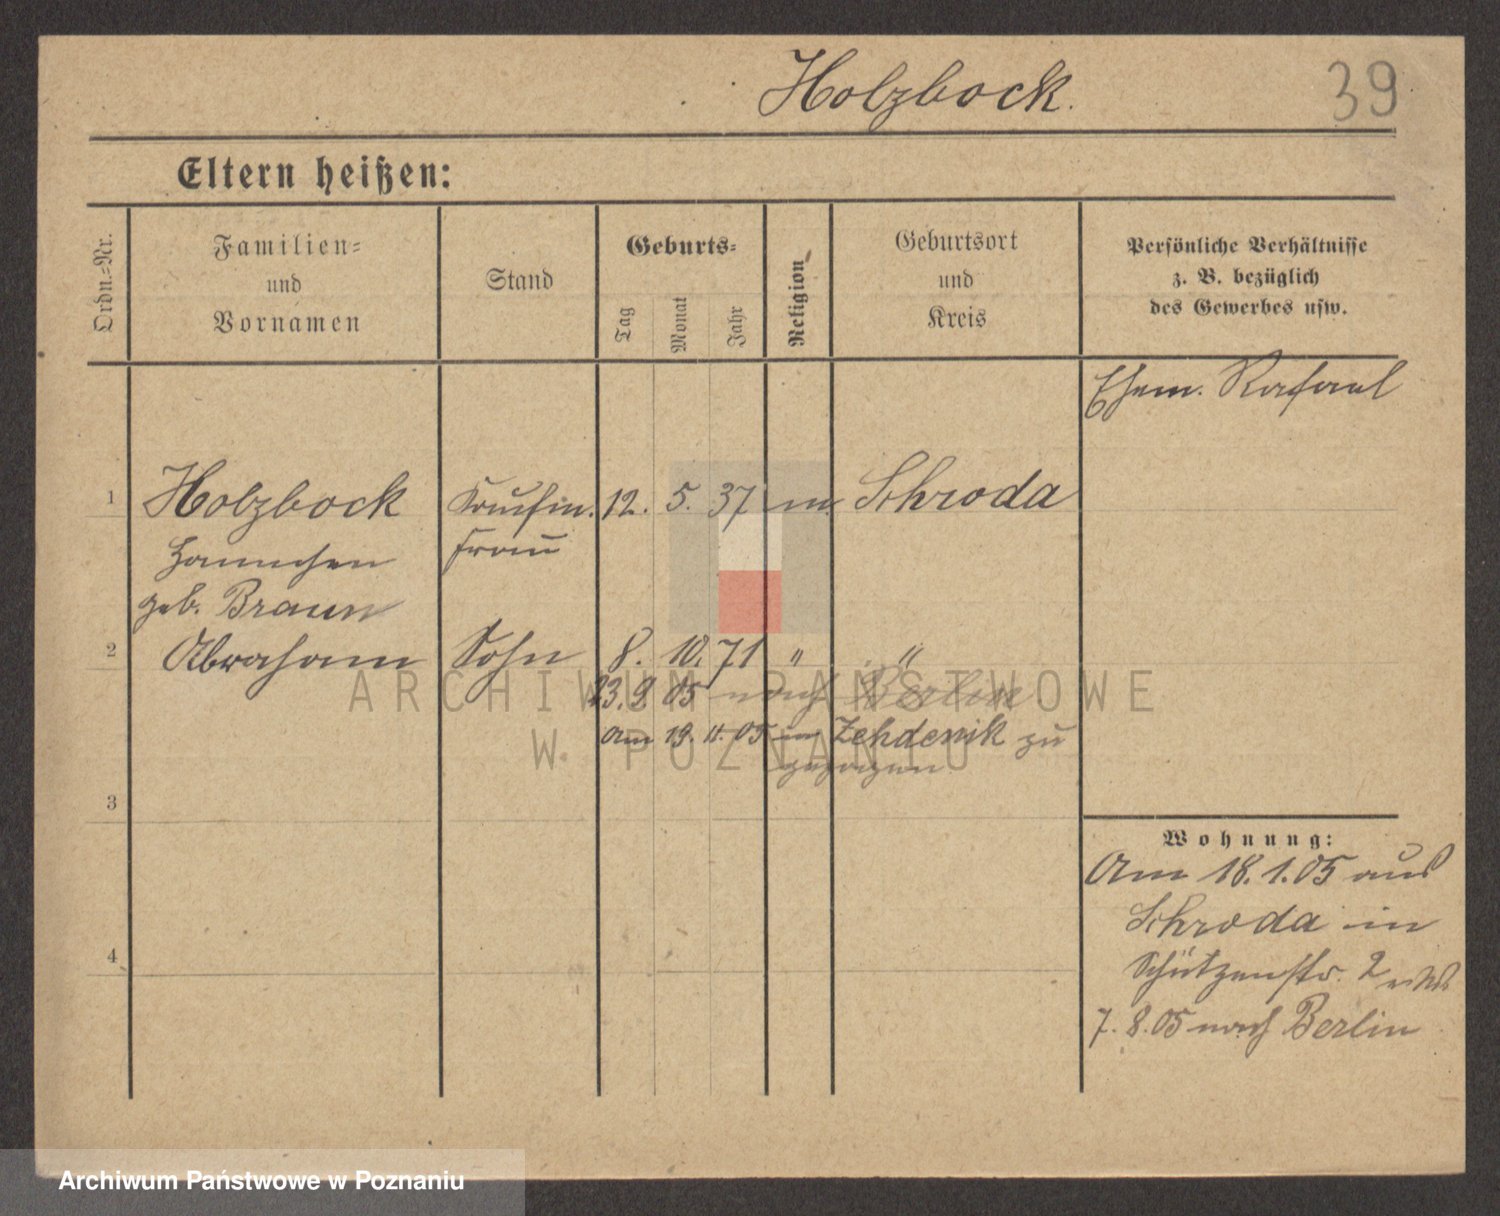 Holzbock.
39
Eltern heißen:
Ordn.-Nr.
Familien-
und
Vornamen
Stand
Geburts-
Tag
Monat
Jahr
Religion
Geburtsort
und
Kreis
Persönliche Verhältnisse
z. B. bezüglich
des Gewerbes usw.
Ehem. Rafael
1 Holzbock 12. 5. 37 m. Schroda
Hannchen Frau
geb. Braun
2 Abraham Sohn 8. 10. 71 " "
23. 9. 05 nach Berlin
Am 19. 11. 05 von Zehdenik zu
gezogen
3
4
Wohnung:
Am 18. 1. 05 aus
Schroda in
Schützenstr. 2
7. 8. 05 nach Berlin
ARCHIWUM PAŃSTWOWE
W POZNANIU
Archiwum Państwowe w Poznaniu